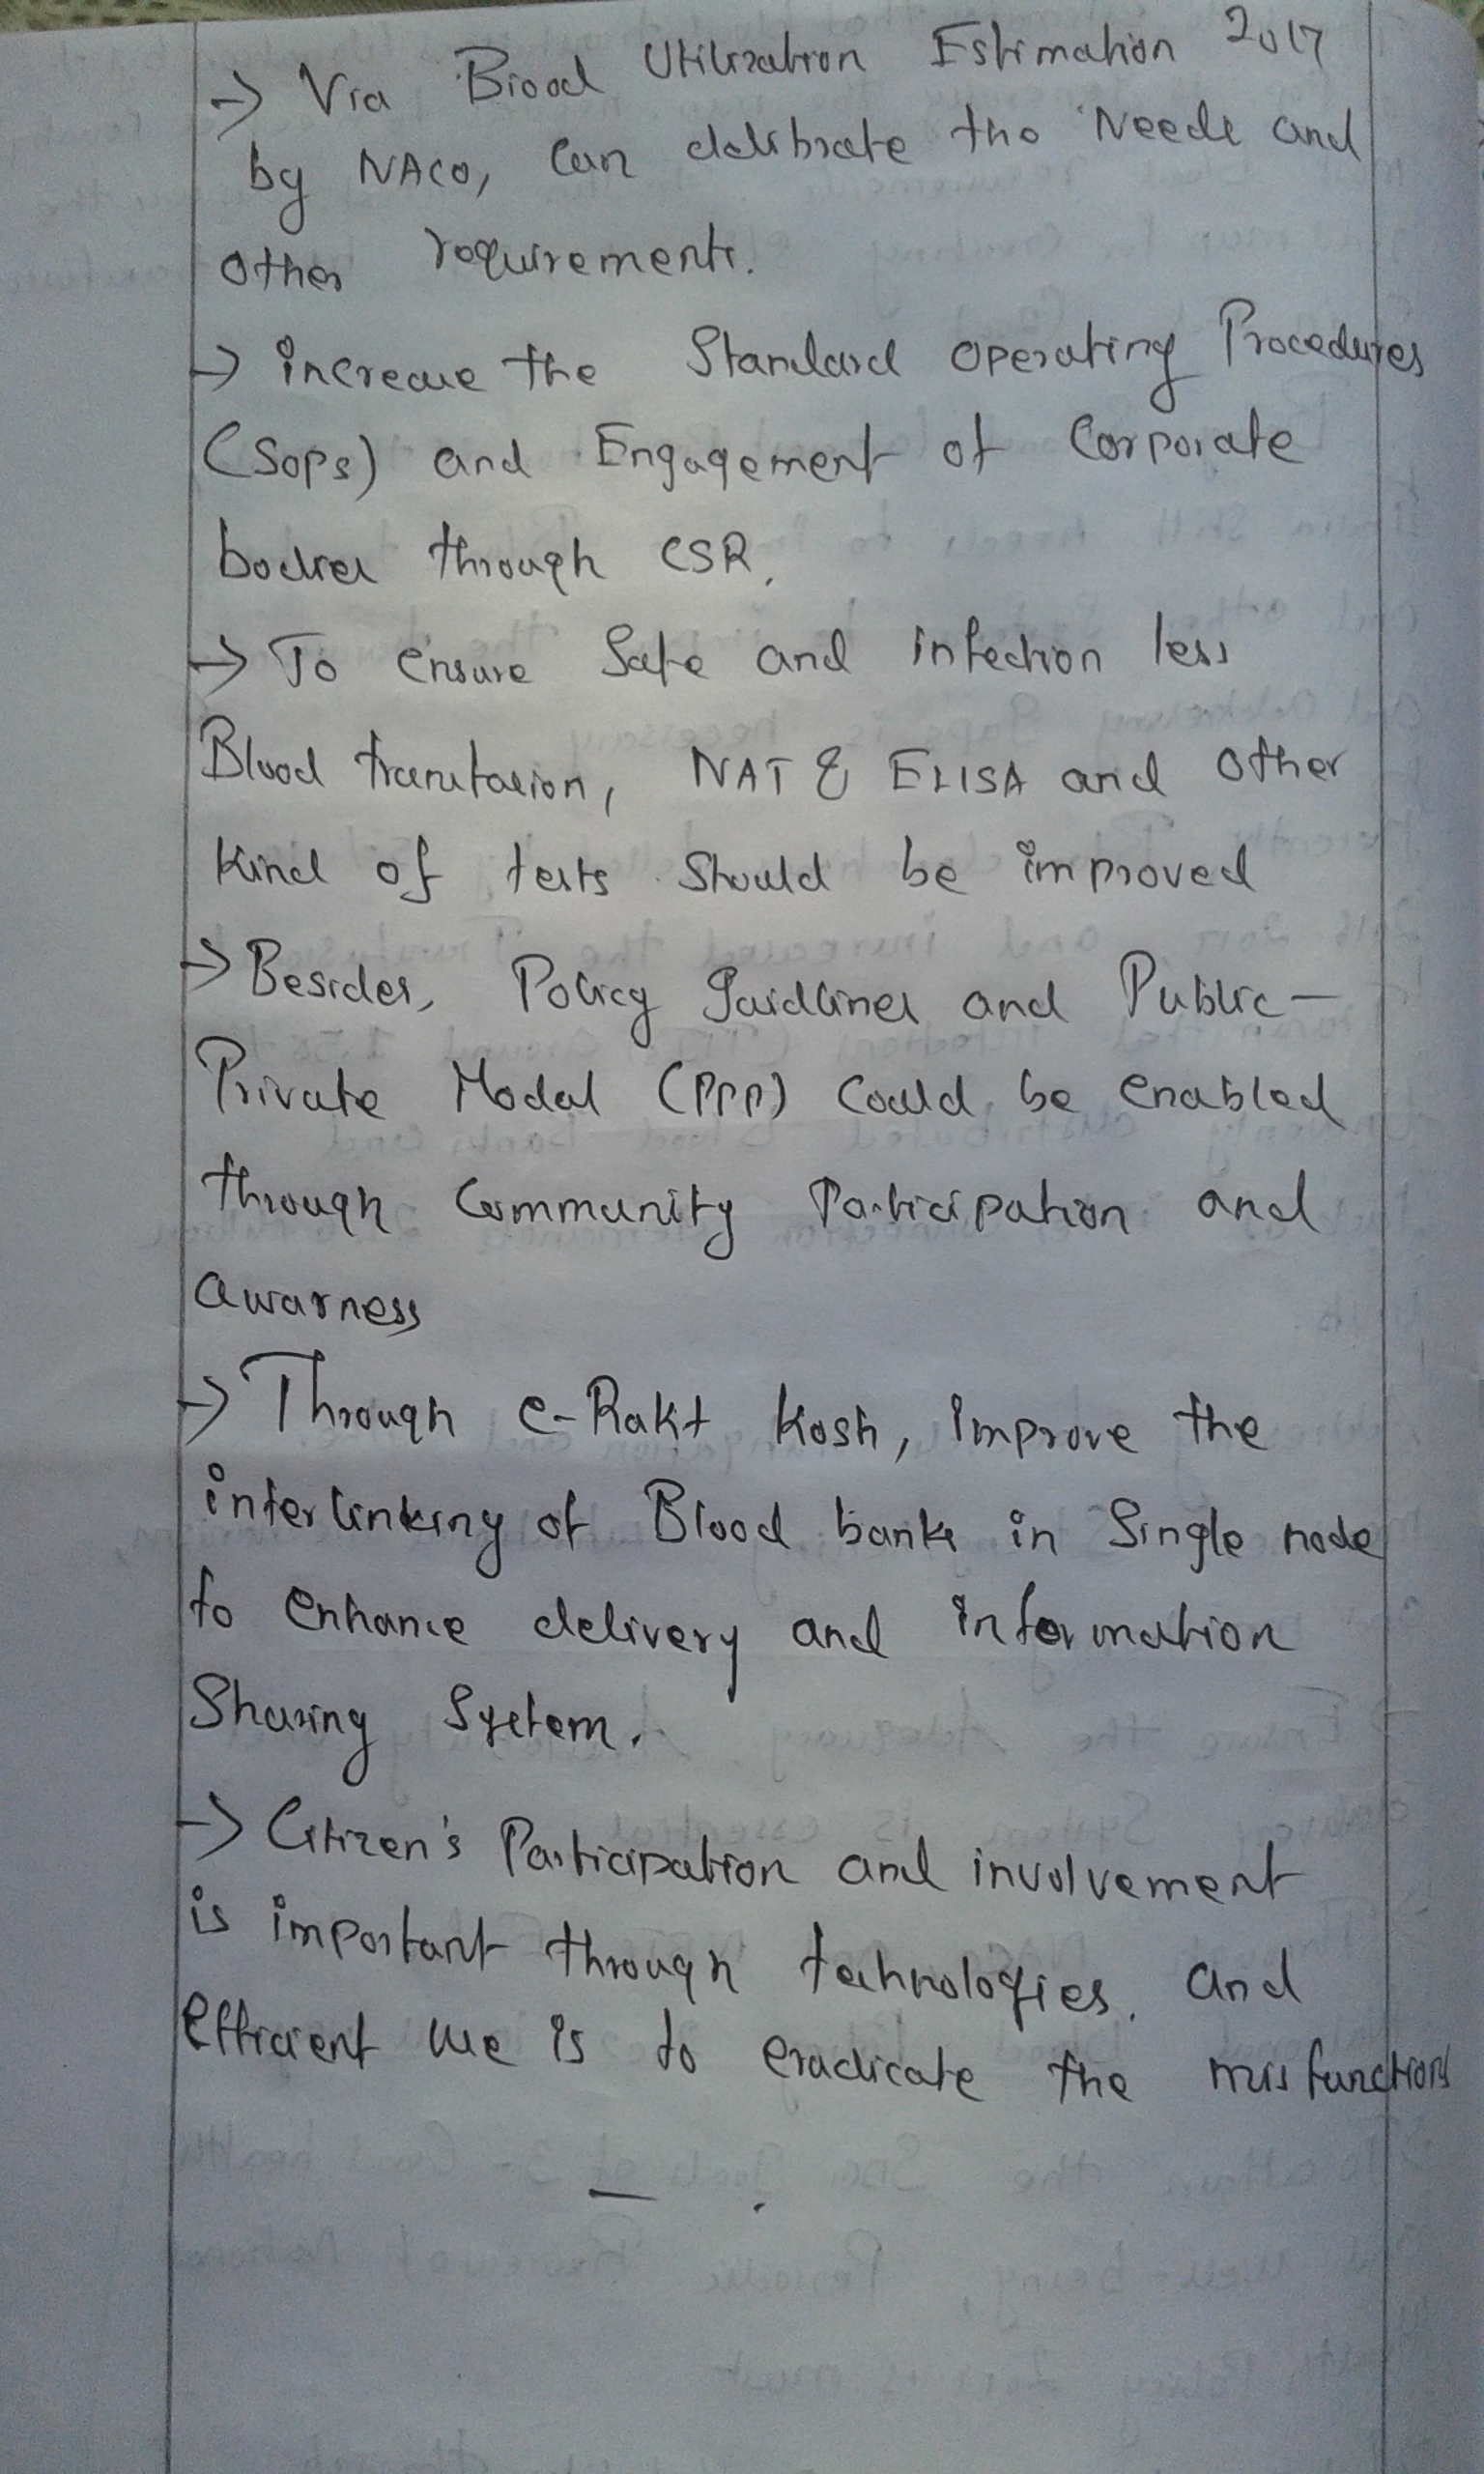 → Via Blood Utilization Estimation 2017
by NACO, Can delibrate the Needs and
other requirements.
→ increase the Standard operating Procedures
(SOPs) and Engagement of Corporate
bodies through CSR.
→ To ensure Safe and infection less
Blood transfusion, NAT & ELISA and other
kind of tests should be improved
→ Besides, Policy guidlines and Public-
Private Modal (PPP) Could be enabled
through Community Participation and
awarness
→ Through e-Rakt Kosh, improve the
interlinking of Blood banks in Single node
to enhance delivery and information
Sharing System.
→ Citizen's Participation and involvement
is important through technologies. and
efficient use is to eradicate the misfunctions
— .